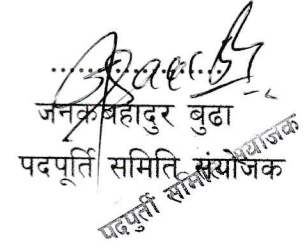 जनकबहादुर बुढा
पदपूर्ति समिति संयोजक
पदपुर्ती समिति संयोजक